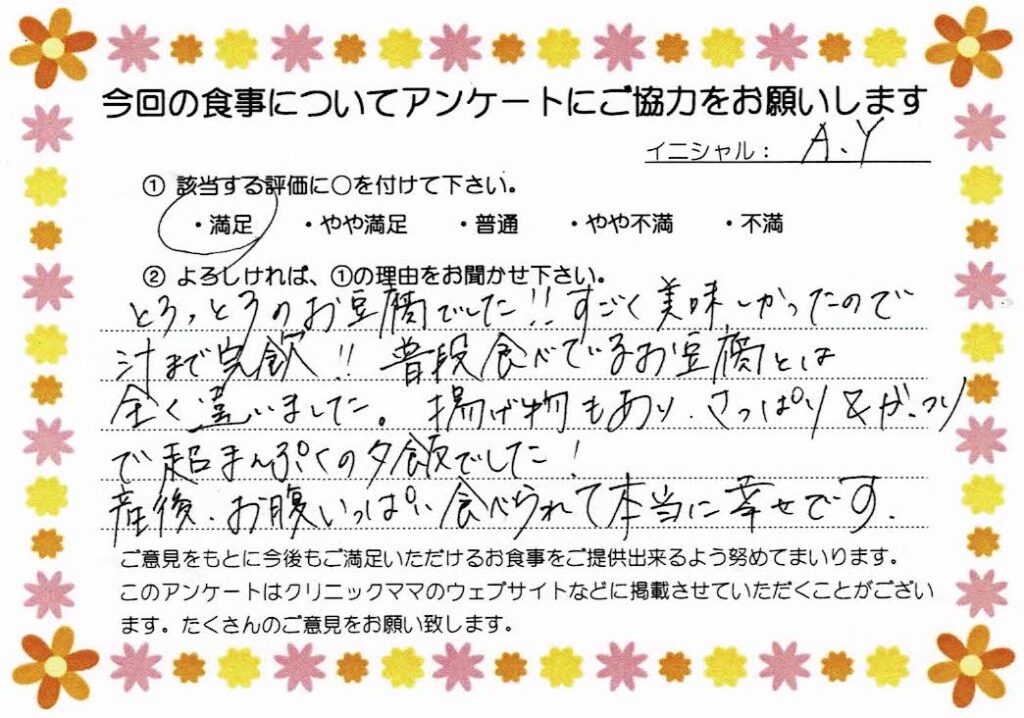 今回の食事についてアンケートにご協力をお願いします
イニシャル： A.Y
① 該当する評価に○を付けて下さい。
・満足 ・やや満足 ・普通 ・やや不満 ・不満
② よろしければ、①の理由をお聞かせ下さい。
とろっとろのお豆腐でした!!すごく美味しかったので
汁まで完飲!! 普段食べているお豆腐とは
全く違いました。揚げ物もあり、さっぱり&がっつり
で超まんぷくの夕飯でした!
産後、お腹いっぱい食べられて本当に幸せです.
ご意見をもとに今後もご満足いただけるお食事をご提供出来るよう努めてまいります。
このアンケートはクリニックママのウェブサイトなどに掲載させていただくことがござい
ます。たくさんのご意見をお願い致します。